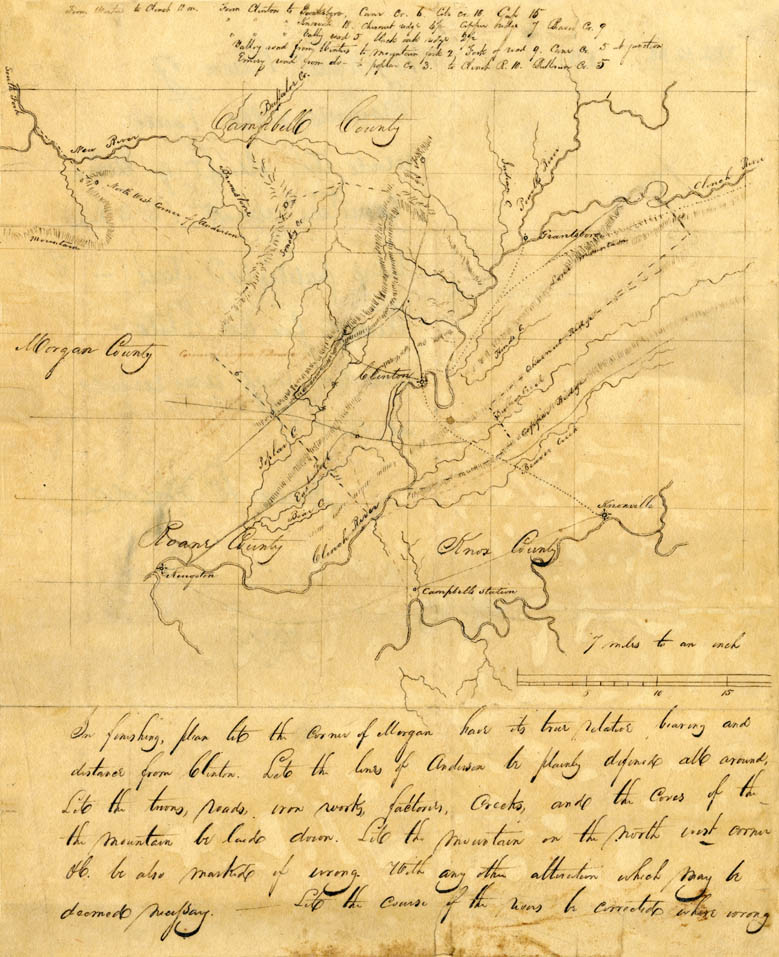 From Clinton to Grantsboro, Cane Cr. 6 Coal Cr. 10 Gap 15
" " " Knoxville 18. Chesnut ridge Copper ridge 7 Beaver Cr. 9
" " " Valley road 5 black oak ridge
Valley road from Winters to mountain fork 2 Fork of road 9. Cane Cr. 5 at junction
Emery road from do- to poplar Cr. 3. to Clinch R. 10. Bullrun Cr. 5
Buffalo Cr.
South Fork
Campbell County
New River
Brimstone
Indian C.
Powells River
Clinch River
North West Corner of Anderson
Smoky Cr.
Grantsboro
Mountain
Lone Mountain
Morgan County
Hinds C.
Chesnut Ridge
Clinton
Bullrun Creek
Copper Ridge
Poplar C.
Beaver Creek
East Fork
Knoxville
Roane County
Clinch River
Knox County
Kingston
Campbells Station
7 miles to an inch
5 10 15
In finishing, plan let the corner of Morgan have its true relative bearing and
distance from Clinton. Let the lines of Anderson be plainly defined all around,
Let the towns, roads, iron works, factories, Creeks, and the Coves of the
the mountain be laid down. Let the mountain on the North west corner
&c. be also marked if wrong With any other alteration which may be
deemed necessary. — Let the course of the rivers be corrected where wrong